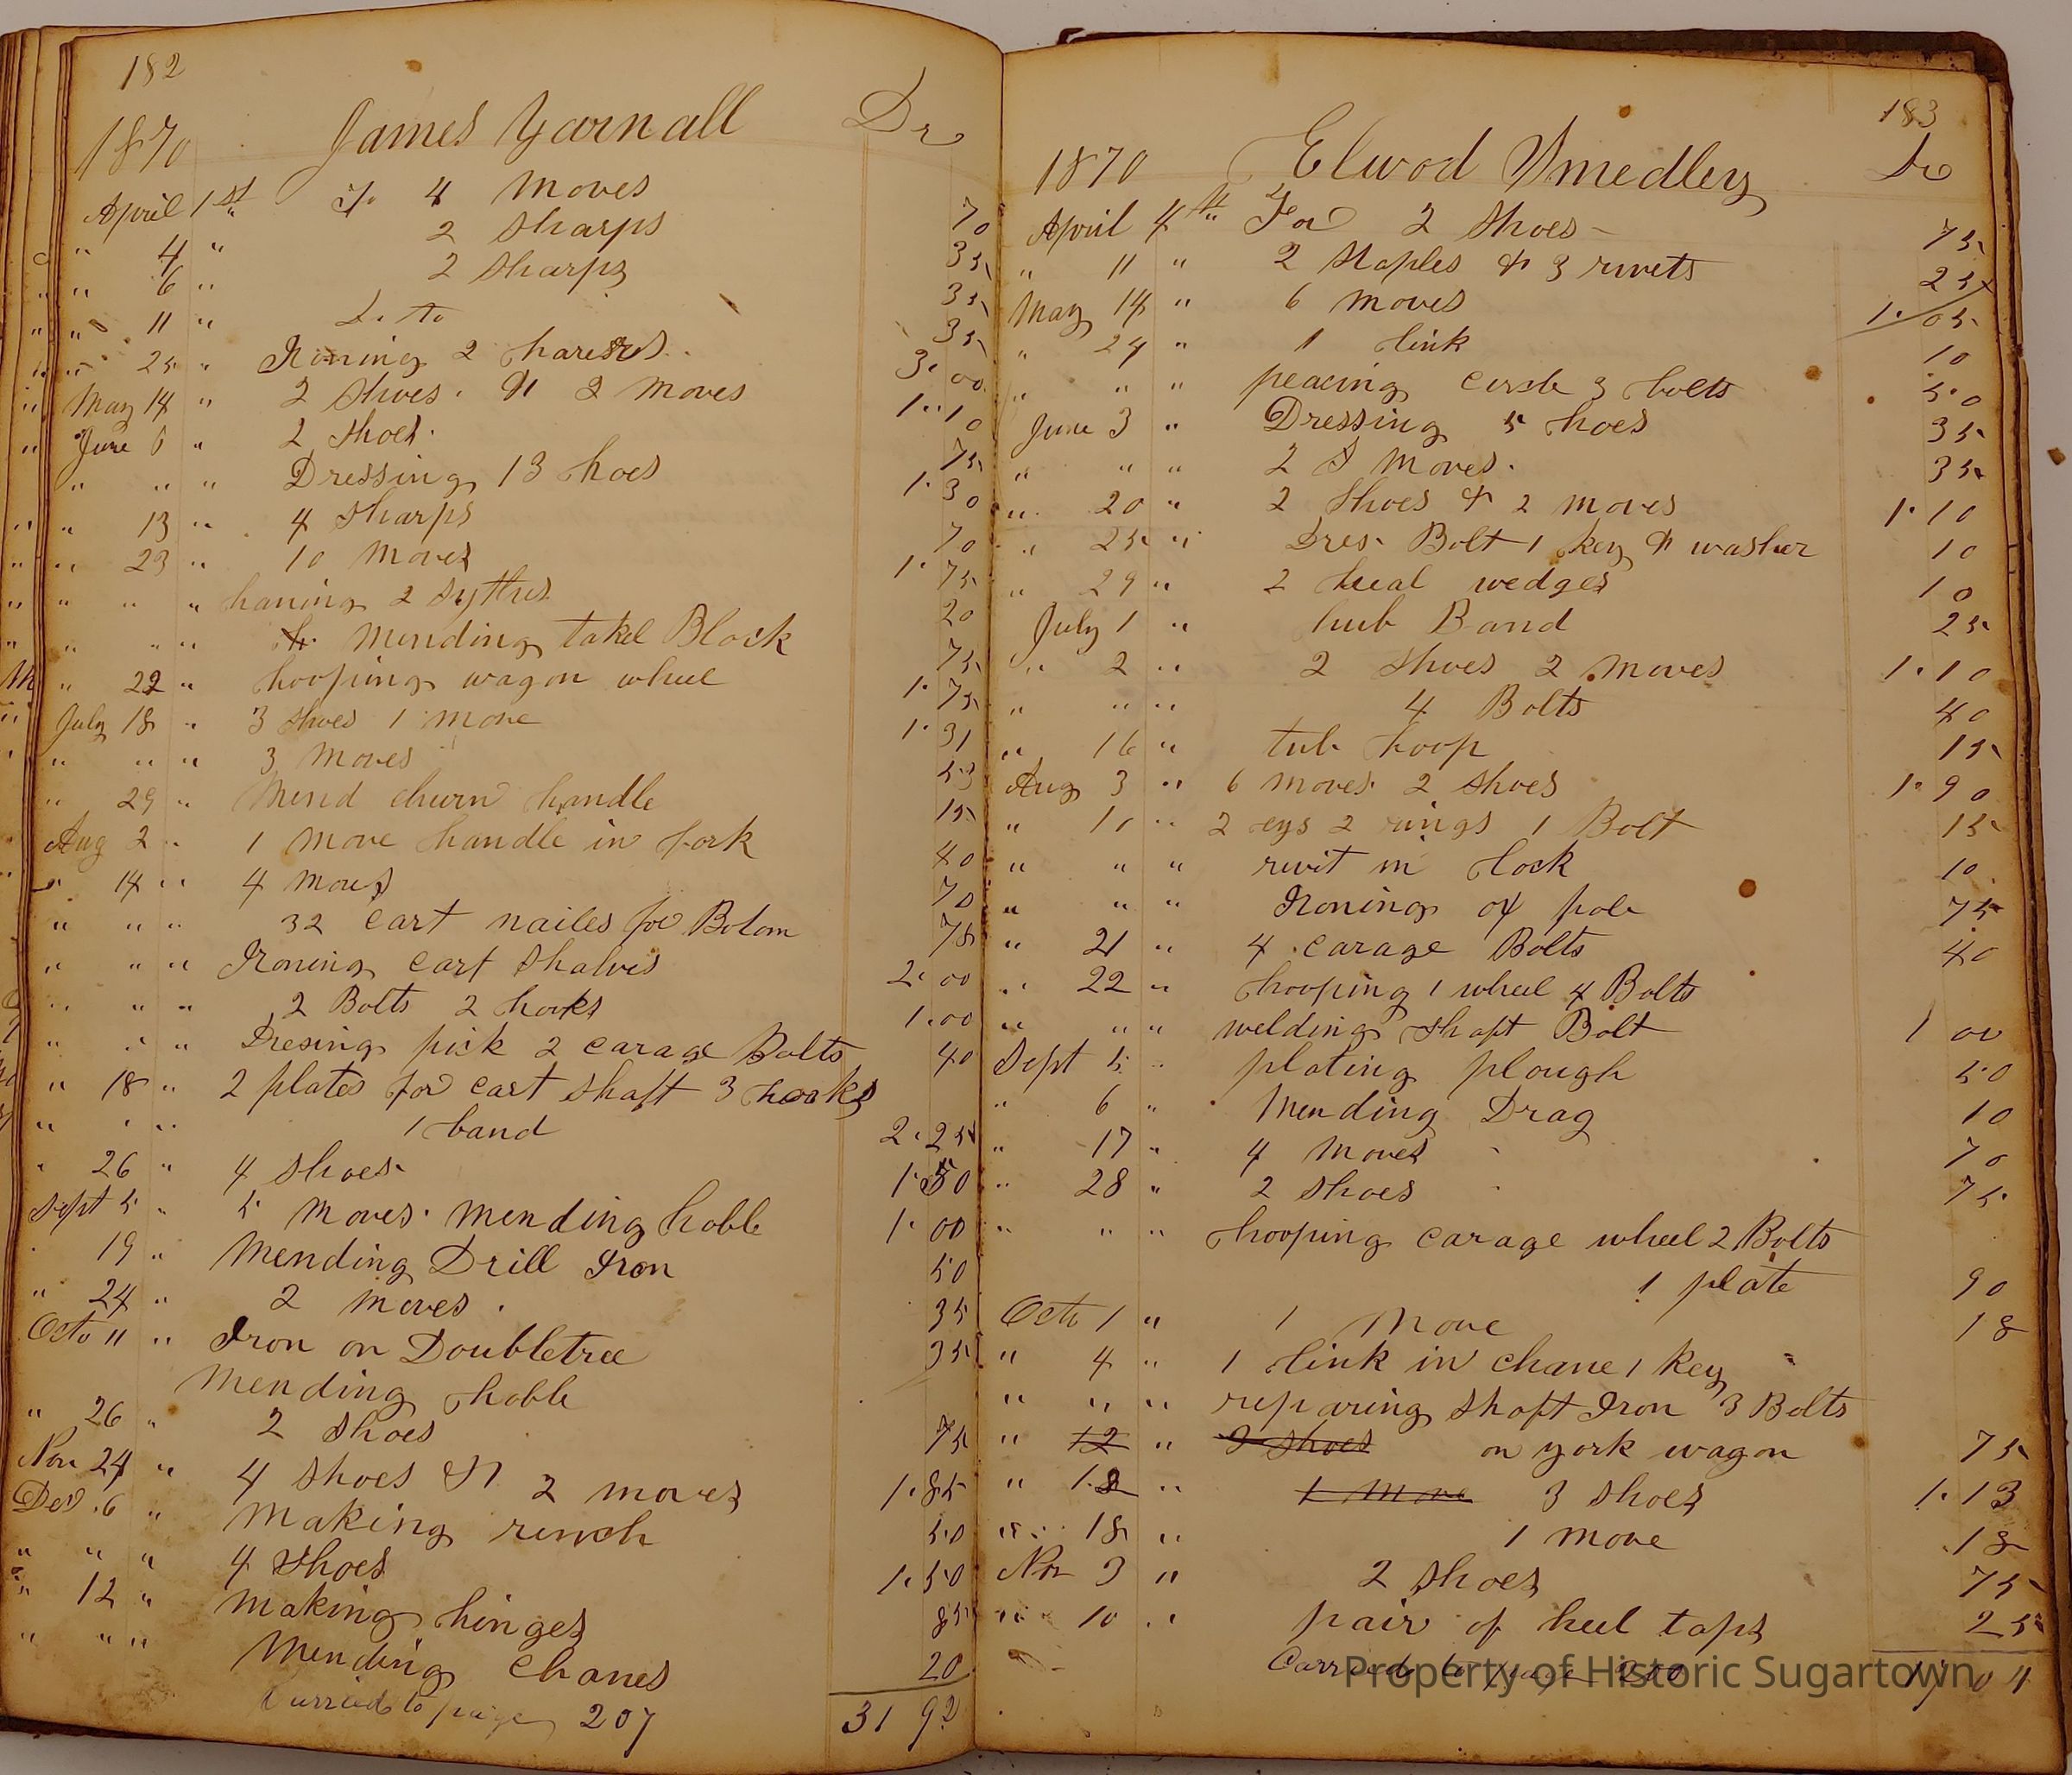 182
1870 James Yarnall Dr
April 1st To 4 Moves 70
" 4 " 2 Sharps 35
" 6 " 2 Sharps 35
" 11 " Do to 35
" 25 " Ironing 2 3.00
May 14 " 2 Shoes & 2 Moves 1.10
June 6 " 2 Shoes 75
" " " Dressing 13 hoes 1.30
" 13 " 4 Sharps 70
" 23 " 10 Moves 1.75
" " " haning 2 Sythes 20
" " " Mending takel Block 75
" 22 " hooping wagon wheel 1.75
July 18 " 3 Shoes 1 move 1.31
" " " 3 Moves 53
" 29 " Mend churn handle 15
Aug 2 " 1 Move handle in fork 40
" 14 " 4 Moves 70
" " " 32 cart nailes for Botom 78
" " " Ironing cart Shalves 2.00
" " " 2 Bolts 2 hooks 1.00
" " " Dresing pick 2 carage Bolts 40
" 18 " 2 plates for cart Shaft 3 hooks
" " " 1 band 2.25
" 26 " 4 Shoes 1.50
Sept 5 " 5 Moves. Mending hoble 1.00
" 19 " Mending Drill Iron 50
" 24 " 2 Moves 35
Octo 11 " Iron on Doubletree 35
Mending hoble
" 26 " 2 Shoes 75
Nov 24 " 4 Shoes & 2 moves 1.85
Des 6 " Making rench 50
" " " 4 Shoes 1.50
" 12 " Making hinges 85
" " " Mending Chanes 20
Carried to page 207 31 92
183
1870 Elwod Smedley Dr
April 4th For 2 Shoes 75
" 11 " 2 Staples & 3 rivets 25
May 14 " 6 Moves 1.05
" 24 " 1 link 10
" " " peacing 3 bolts 50
June 3 " Dressing 5 hoes 35
" " " 2 S Moves 35
" 20 " 2 Shoes & 2 moves 1.10
" 25 " Dres Bolt 1 key & washer 10
" 29 " 2 heal wedges 10
July 1 " hub Band 25
" 2 " 2 Shoes 2 Moves 1.10
" " " 4 Bolts 40
" 16 " tub hoop 15
Aug 3 " 6 Moves 2 Shoes 1.90
" 10 " 2 eys 2 rings 1 Bolt 15
" " " rivit in lock 10
" " " Ironing of pole 75
" 21 " 4 carage Bolts 40
" 22 " hooping 1 wheel 4 Bolts
" " " welding shaft Bolt 1 00
Sept 5 " plating plough 50
" 6 " Mending Drag 10
" 17 " 4 Moves 70
" 28 " 2 Shoes 75
" " " hooping carage wheel 2 Bolts
1 plate 90
Octo 1 " 1 Move 18
" 4 " 1 link in chane 1 key
" " " reparing Shaft Iron 3 Bolts
" 12 " 2 Shoes on york wagon 75
" 12 " 1 Move 3 Shoes 1.13
" 18 " 1 Move 18
Nov 3 " 2 Shoes 75
" 10 " pair of heel taps 25
Carried to page 17 04
Property of Historic Sugartown